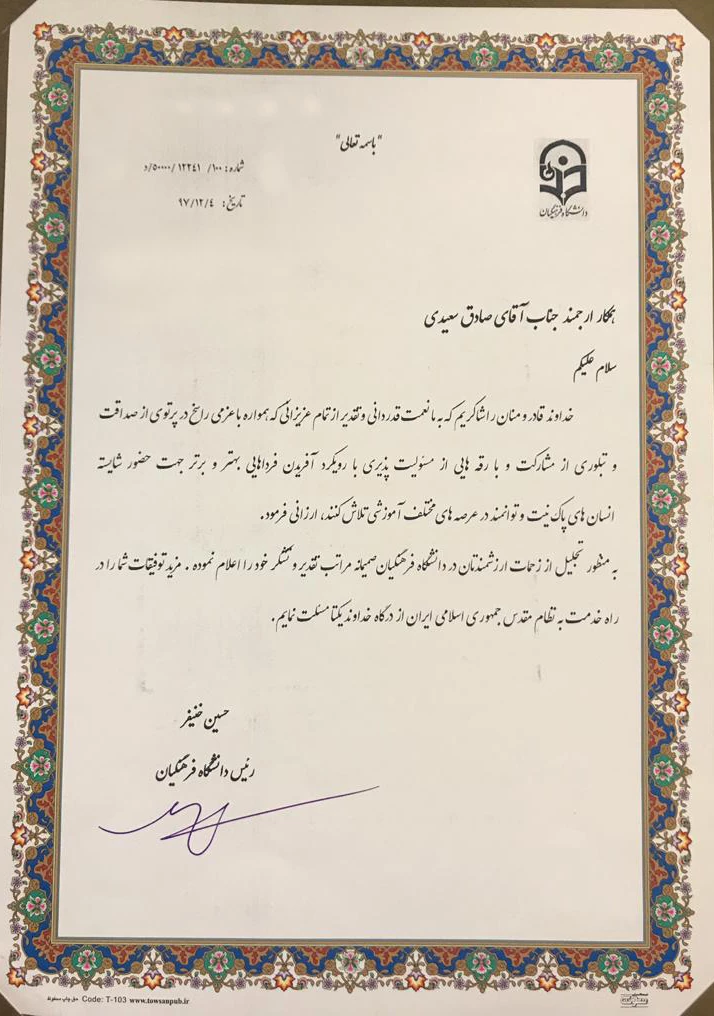 "باسمه تعالی"
شماره: ۱۰۰/ ۱۲۲۴۱ /۵۰۰۰۰/د
تاریخ: ۹۷/۱۲/۴
دانشگاه فرهنگیان
همکار ارجمند جناب آقای صادق سعیدی
سلام علیکم
خداوند قادر و منان را شاکریم که به ما نعمت قدردانی و تقدیر از تمام عزیزانی که همواره با عزمی راسخ در پرتوی از صداقت
و تبلوری از مشارکت و بارقه هایی از مسئولیت پذیری با رویکرد آفریدن فرداهایی بهتر و برتر جهت حضور شایسته
انسان های پاک نیت و توانمند در عرصه های مختلف آموزشی تلاش کنند، ارزانی فرمود.
به منظور تجلیل از زحمات ارزشمندتان در دانشگاه فرهنگیان صمیمانه مراتب تقدیر و تشکر خود را اعلام نموده . مزید توفیقات شما را در
راه خدمت به نظام مقدس جمهوری اسلامی ایران از درگاه خداوند یکتا مسئلت نمایم.
حسین خنیفر
رئیس دانشگاه فرهنگیان
حق چاپ محفوظ Code: T-103 www.towsanpub.ir